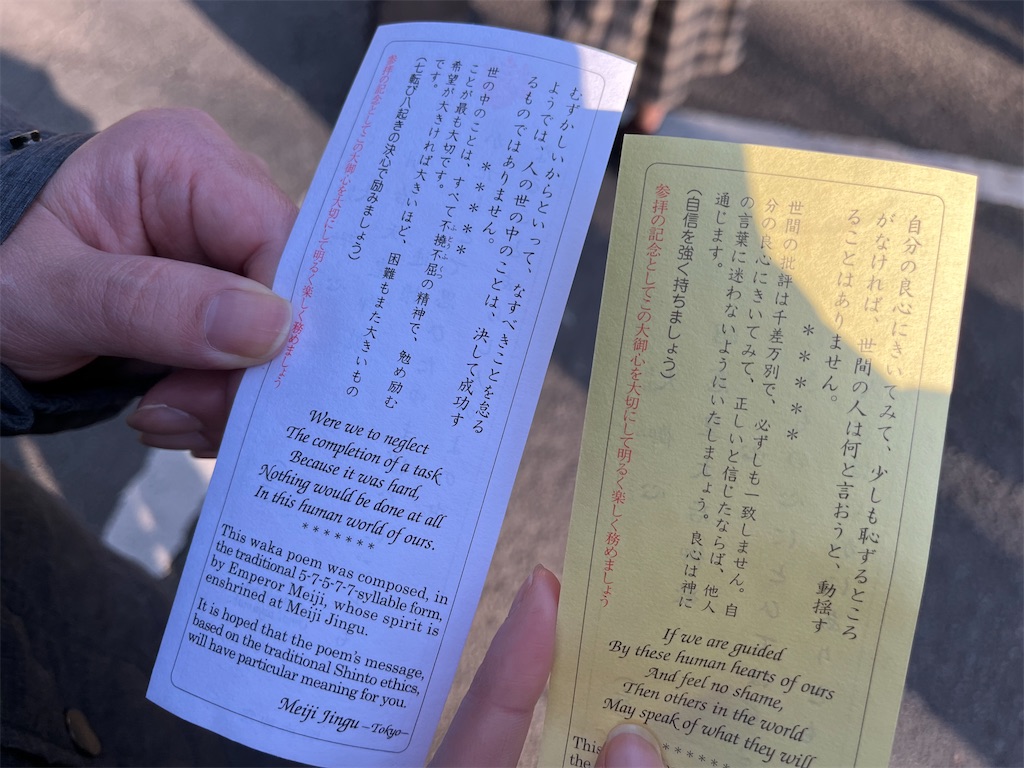 むずかしいからといって、なすべきことを怠る
ようでは、人の世の中のことは、決して成功す
るものではありません。
＊＊＊＊＊
世の中のことは、すべて不撓不屈の精神で、勉め励む
ことが最も大切です。
希望が大きければ大きいほど、困難もまた大きいもの
です。
(七転び八起きの決心で励みましょう)
参拝の記念としてこの大御心を大切にして明るく楽しく務めましょう
Were we to neglect
The completion of a task
Because it was hard,
Nothing would be done at all
In this human world of ours.
*******
This waka poem was composed, in
the traditional 5-7-5-7-7-syllable form,
by Emperor Meiji, whose spirit is
enshrined at Meiji Jingu.
It is hoped that the poem's message,
based on the traditional Shinto ethics,
will have particular meaning for you.
Meiji Jingu –Tokyo–
自分の良心にきいてみて、少しも恥ずるところ
がなければ、世間の人は何と言おうと、動揺す
ることはありません。
＊＊＊＊＊
世間の批評は千差万別で、必ずしも一致しません。自
分の良心にきいてみて、正しいと信じたならば、他人
の言葉に迷わないようにいたしましょう。良心は神に
通じます。
(自信を強く持ちましょう)
参拝の記念としてこの大御心を大切にして明るく楽しく務めましょう
If we are guided
By these human hearts of ours
And feel no shame,
Then others in the world
May speak of what they will
******
This
the